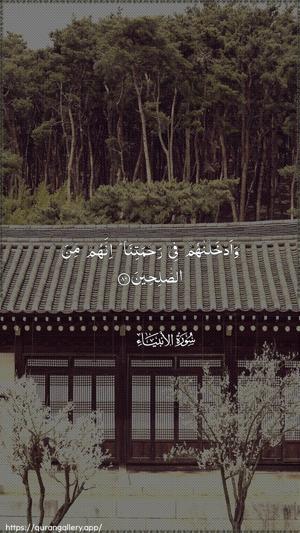 وَأَدْخَلْنَٰهُمْ فِى رَحْمَتِنَآ ۖ إِنَّهُم مِّنَ
ٱلصَّٰلِحِينَ ٨٦
سُورَةُ الأَنْبِيَاء
https://qurangallery.app/